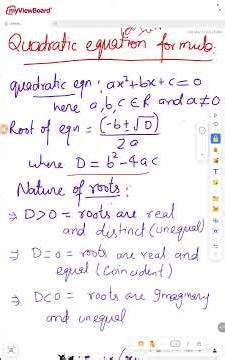 myViewBoard
Quadratic equation formula.
quadratic eqn: ax²+bx+c=0
here a,b,c ∈ R and a≠0
Root of eqn = (-b±√D)
2a
where D = b²-4ac
Nature of roots:
⇒ D>0 = roots are real
and distinct (unequal)
⇒ D=0 = roots are real and
equal (Coincident)
⇒ D<0 = roots are Imaginary
and unequal